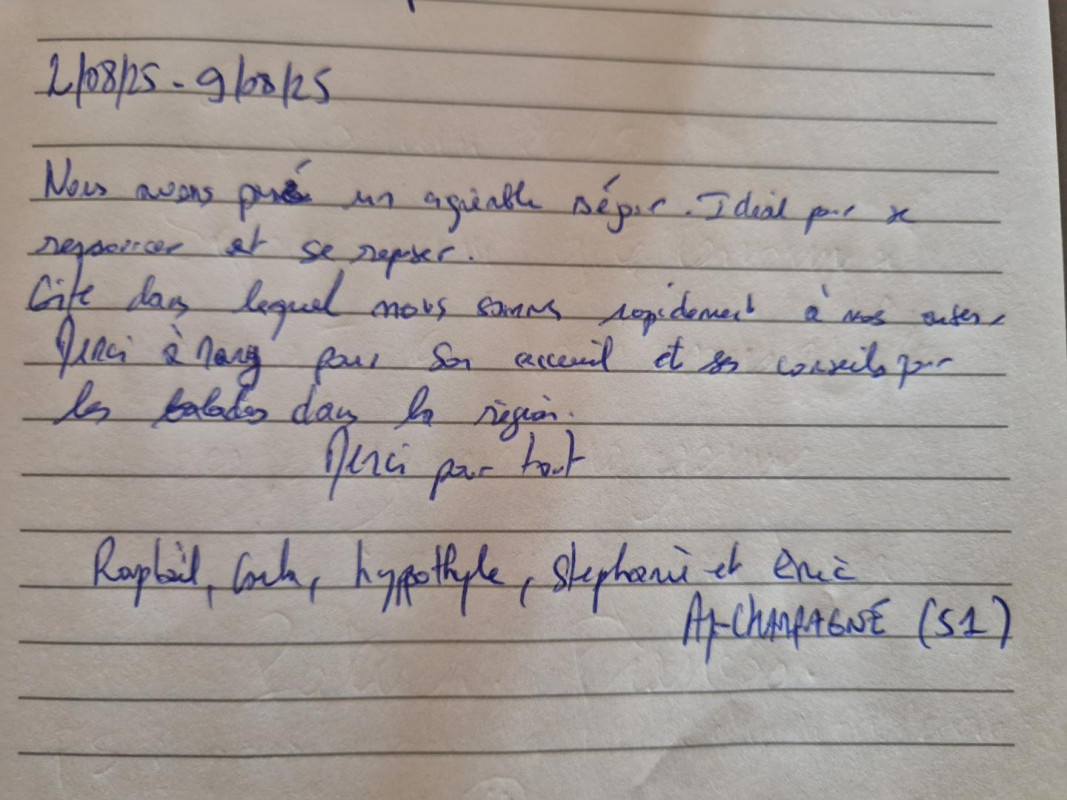 2/08/25 - 9/08/25
Nous avons passé un agréable séjour. Idéal pour se
ressourcer et se reposer.
Gîte dans lequel nous sommes rapidement à nos aises.
Merci à pour son accueil et ses conseils pour
les balades dans la région.
Merci pour tout
Raphaël, Carla, hyppothyle, Stephanie et Eric
Aÿ-CHAMPAGNE (51)